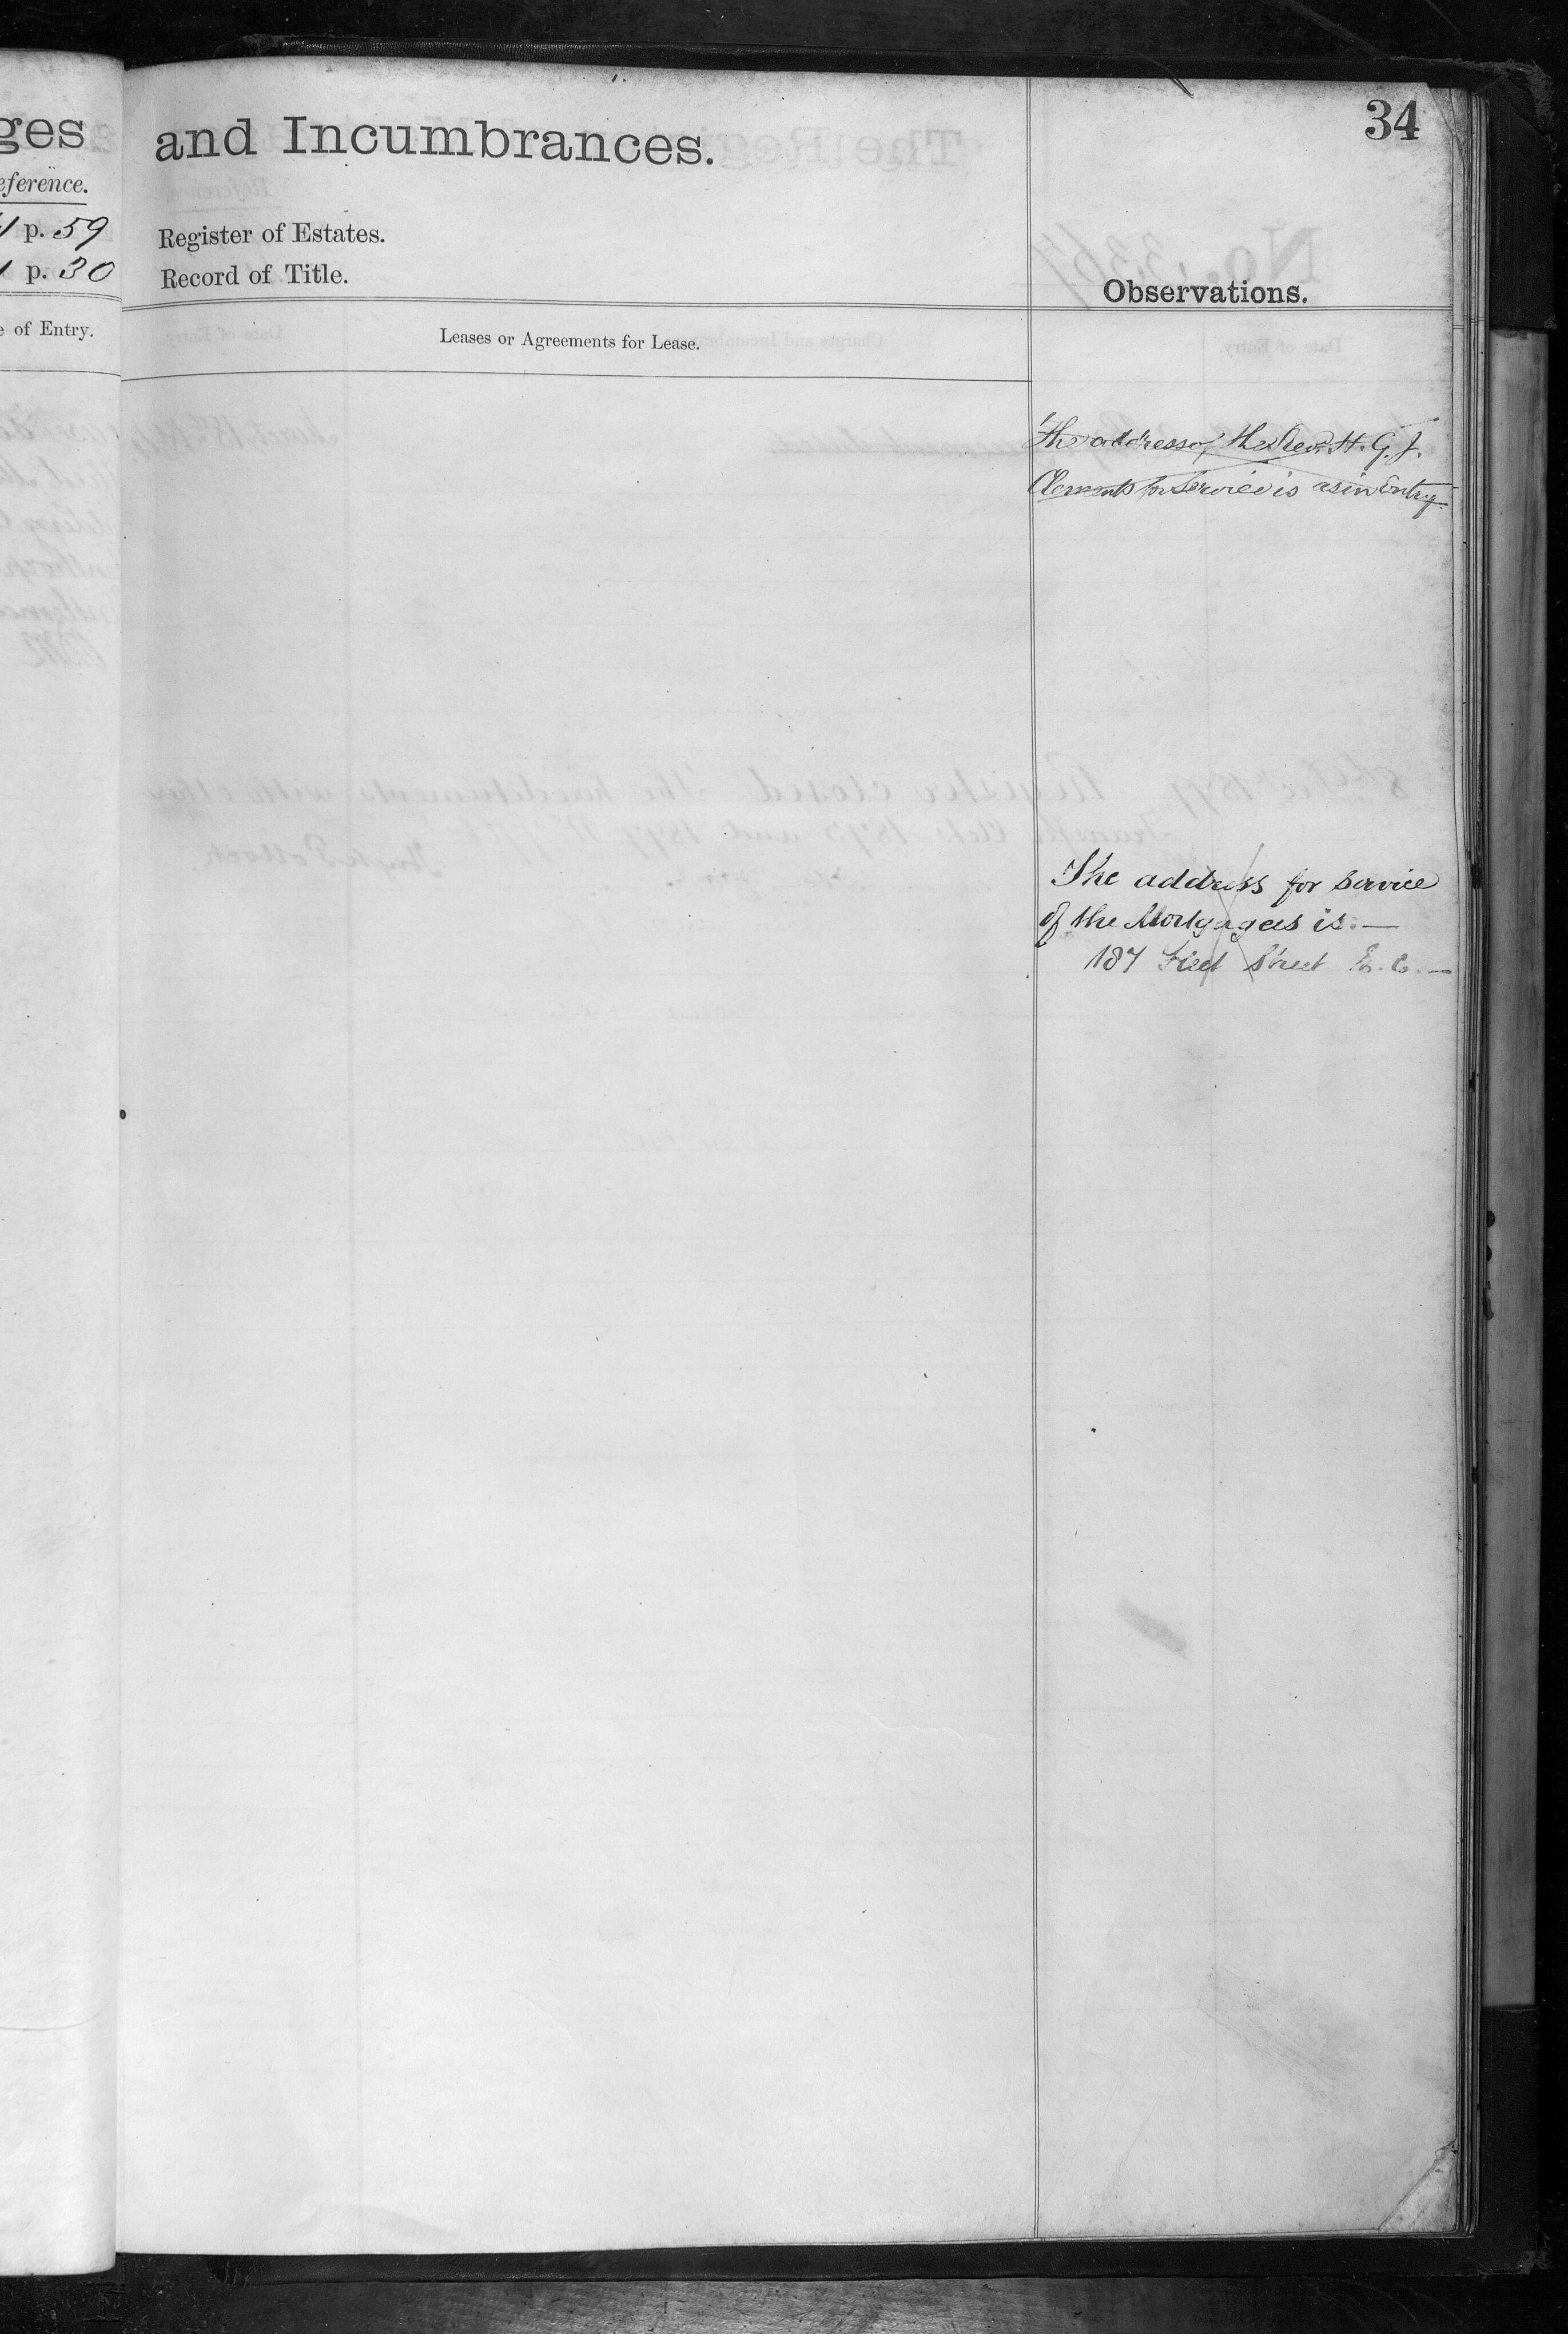 ges
eference.
p. 59
p. 30
e of Entry.
34
and Incumbrances.
Register of Estates.
Record of Title.
Observations.
Leases or Agreements for Lease.
The address of the Rev. H. G. J.
Clements for Service is as in Entry
The address for service
of the Mortgagees is:—
187 Fleet Street E. C. —